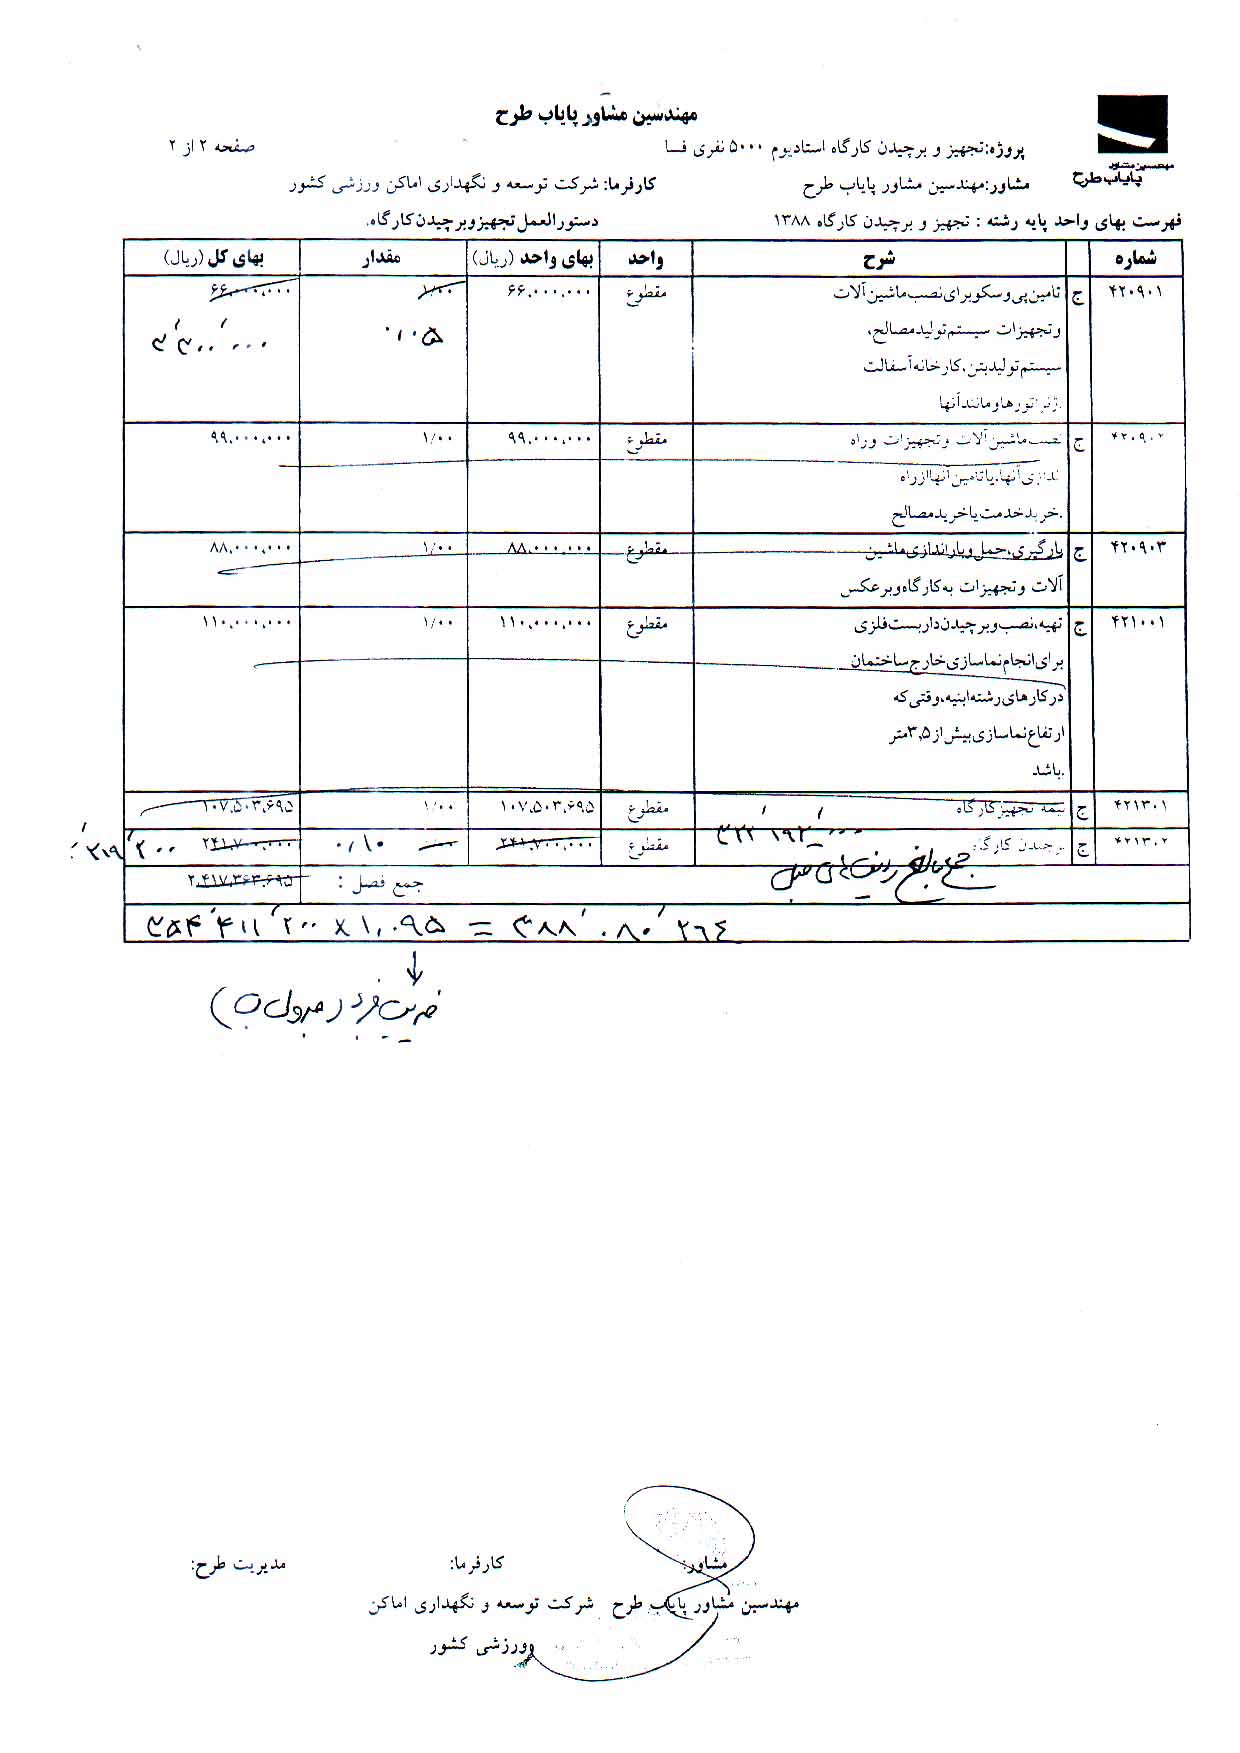 مهندسین مشاور پایاب طرح
مهندسین مشاور
پایاب طرح
پروژه:تجهیز و برچیدن کارگاه استادیوم ۵۰۰۰ نفری فسا
صفحه ۲ از ۲
مشاور:مهندسین مشاور پایاب طرح
کارفرما: شرکت توسعه و نگهداری اماکن ورزشی کشور
فهرست بهای واحد پایه رشته : تجهیز و برچیدن کارگاه ۱۳۸۸
دستورالعمل تجهیز و برچیدن کارگاه.
شماره شرح واحد بهای واحد (ریال) مقدار بهای کل (ریال)
۴۲۰۹۰۱ ج تامین پی و سکو برای نصب ماشین آلات مقطوع ۶۶,۰۰۰,۰۰۰ ۱/۰۰ ۶۶,۰۰۰,۰۰۰
و تجهیزات سیستم تولید مصالح، ۰/۰۵ ۳٬۳۰۰٬۰۰۰
سیستم تولید بتن، کارخانه آسفالت
ژنراتورها و مانند آنها.
۴۲۰۹۰۲ ج نصب ماشین آلات و تجهیزات و راه مقطوع ۹۹,۰۰۰,۰۰۰ ۱/۰۰ ۹۹,۰۰۰,۰۰۰
اندازی آنها، یا تامین آنها از راه
خرید خدمت یا خرید مصالح.
۴۲۰۹۰۳ ج بارگیری، حمل و باراندازی ماشین مقطوع ۸۸,۰۰۰,۰۰۰ ۱/۰۰ ۸۸,۰۰۰,۰۰۰
آلات و تجهیزات به کارگاه و برعکس
۴۲۱۰۰۱ ج تهیه، نصب و برچیدن داربست فلزی مقطوع ۱۱۰,۰۰۰,۰۰۰ ۱/۰۰ ۱۱۰,۰۰۰,۰۰۰
برای انجام نماسازی خارج ساختمان
در کارهای رشته ابنیه، وقتی که
ارتفاع نماسازی بیش از ۳,۵ متر
باشد.
۴۲۱۳۰۱ ج بیمه تجهیز کارگاه مقطوع ۱۰۷,۵۰۳,۶۹۵ ۱/۰۰ ۱۰۷,۵۰۳,۶۹۵
۴۲۱۳۰۲ ج برچیدن کارگاه مقطوع ۲۴۱,۷۰۰,۰۰۰ ۰/۱۰ ۲۴۱,۷۰۰,۰۰۰
۳۲۲٬۱۹۲٬۰۰۰
جمع مبالغ ردیف های قبل
جمع فصل : ۲,۴۱۷,۳۶۳,۶۹۵
۳۵۴٬۴۱۱٬۲۰۰ × ۱,۰۹۵ = ۳۸۸٬۰۸۰٬۲۶۴
مشاور: کارفرما: مدیریت طرح:
مهندسین مشاور پایاب طرح شرکت توسعه و نگهداری اماکن
ورزشی کشور